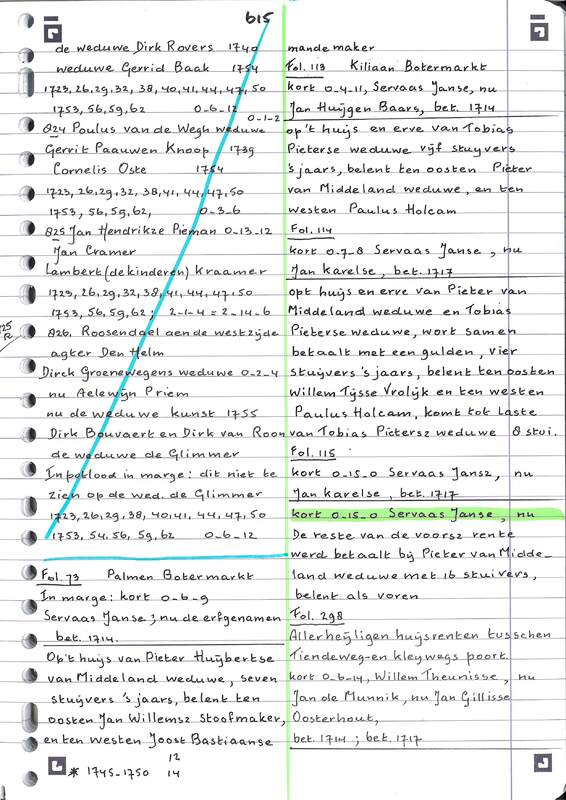 615
de weduwe Dirk Rovers 1740
weduwe Gerrid Baak 1754
1723, 26, 29, 32, 38, 40, 41, 44, 47, 50
1753, 56, 59, 62 0-6-12
0-1-2
824 Poulus van de Wegh weduwe
Gerrit Paauwen Knoop 1739
Cornelis Oste 1754
1723, 26, 29, 32, 38, 41, 44, 47, 50
1753, 56, 59, 62, 0-3-6
825 Jan Hendrikze Pieman 0-13-12
Jan Cramer
Lambert (de kinderen) Kraamer
1723, 26, 29, 32, 38, 41, 44, 47, 50
1753, 56, 59, 62; 2-1-4 = 2-14-6
826. Roosendael aen de westzijde
agter Den Helm
Dirck Groenewegens weduwe 0-2-4
nu Aelewijn Priem
nu de weduwe kunst 1755
Dirk Bouvaert en Dirk van Roon
de weduwe de Glimmer
In potlood in marge: dit niet te
zien op de wed. de Glimmer
1723, 26, 29, 38, 40, 41, 44, 47, 50
1753, 54, 56, 59, 62 0-6-12
Fol. 73 Palmen Botermarkt
In marge: kort 0-6-9
Servaas Janse; nu de erfgenamen
bet. 1714.
Op't huijs van Pieter Huijbertse
van Middeland weduwe, seven
stuijvers 's jaars, belent ten
oosten Jan Willemsz Stoofmaker,
en ten westen Joost Bastiaanse
* 1745-1750 12
14
mandemaker
Fol. 113 Kiliaan Botermarkt
kort 0-4-11, Servaas Janse, nu
Jan Huijgen Baars, bet. 1714
op't huijs en erve van Tobias
Pieterse weduwe vijf stuyvers
's jaars, belent ten oosten Pieter
van Middeland weduwe, en ten
westen Paulus Holcam
Fol. 114
kort 0-7-8 Servaas Janse, nu
Jan Karelse, bet. 1717
opt huijs en erve van Pieter van
Middeland weduwe en Tobias
Pieterse weduwe, wort samen
betaalt met een gulden, vier
stuijvers 's jaars, belent ten oosten
Willem Tijsse Vrolijk en ten westen
Paulus Holcam, komt tot laste
van Tobias Pietersz weduwe 8 stui.
Fol. 115
kort 0-15-0 Servaas Jansz, nu
Jan Karelse, bet. 1717
kort 0-15-0 Servaas Janse, nu
De reste van de voorsz rente
werd betaalt bij Pieter van Midde-
land weduwe met 16 stuivers,
belent als voren
Fol. 298
Allerheijligen huijsrenten tusschen
Tiendeweg- en kleywegs poort.
kort 0-6-14, Willem Theunisse, nu
Jan de Munnik, nu Jan Gillisse
Oosterhout,
bet. 1714; bet. 1717